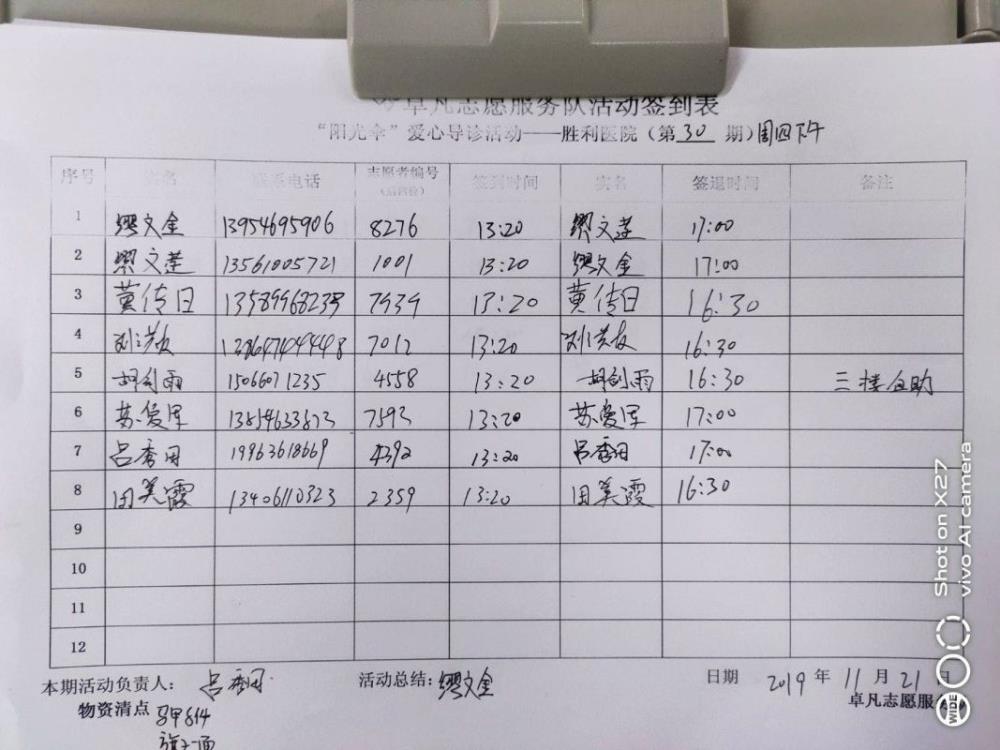 卓凡志愿服务队活动签到表
“阳光伞”爱心导诊活动——胜利医院（第30期）周四下午
序号 实名 联系电话 志愿者编号（后四位） 签到时间 实名 签退时间 备注
1 缪文金 13954695906 8276 13:20 缪文莲 17:00
2 缪文莲 13561005721 1001 13:20 缪文金 17:00
3 黄传日 7939 13:20 黄传日 16:30
4 7012 13:20 16:30
5 胡剑雨 15066071235 4558 13:20 胡剑雨 16:30 三楼自助
6 苏爱军 13854633673 7593 13:20 苏爱军 17:00
7 吕秀田 19963618669 4392 13:20 吕秀田 17:00
8 田美霞 13406110323 2359 13:20 田美霞 16:30
9
10
11
12
本期活动负责人：吕秀田 活动总结：缪文金 日期 2019年11月21日
物资清点 马甲8件 卓凡志愿服务
旗子一面
Shot on X27
vivo AI camera
WIDE